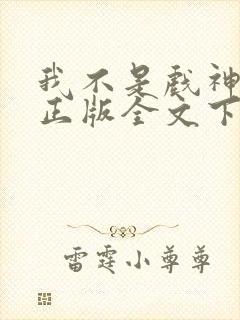 我不是戏神
正版全文下
雷霆小尊尊